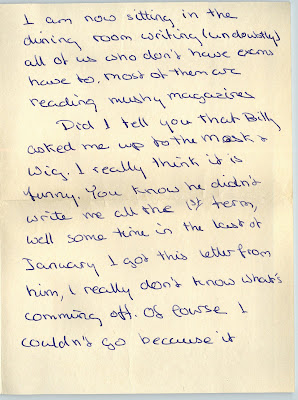 I am now sitting in the
dining room writing (undoubtly)
all of us who don't have exems
have to. Most of them are
reading mushy magazines
Did I tell you that Billy
asked me up to the Mask &
Wig. I really think it is
funny. You know he didn't
write me all the 1st term,
well some time in the last of
January I got this letter from
him, I really don't know what's
comming off. Of course I
couldn't go because it